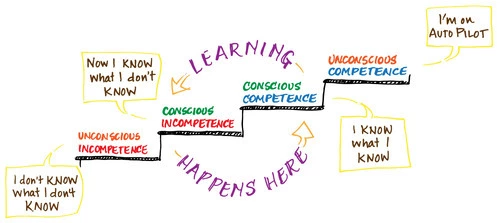 I'm on
AUTO PILOT
LEARNING
UNCONSCIOUS
COMPETENCE
Now I KNOW
what I don't
KNOW
CONSCIOUS
COMPETENCE
CONSCIOUS
INCOMPETENCE
I KNOW
what I
KNOW
UNCONSCIOUS
INCOMPETENCE
HAPPENS HERE
I don't KNOW
what I don't
KNOW